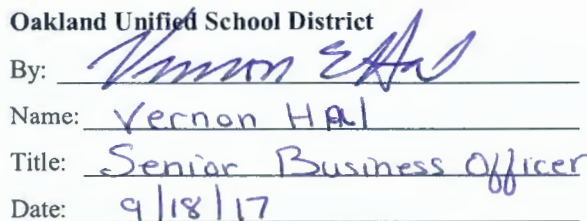 Oakland Unified School District
By: Vernon E Hal
Name: Vernon Hal
Title: Senior Business Officer
Date: 9/18/17